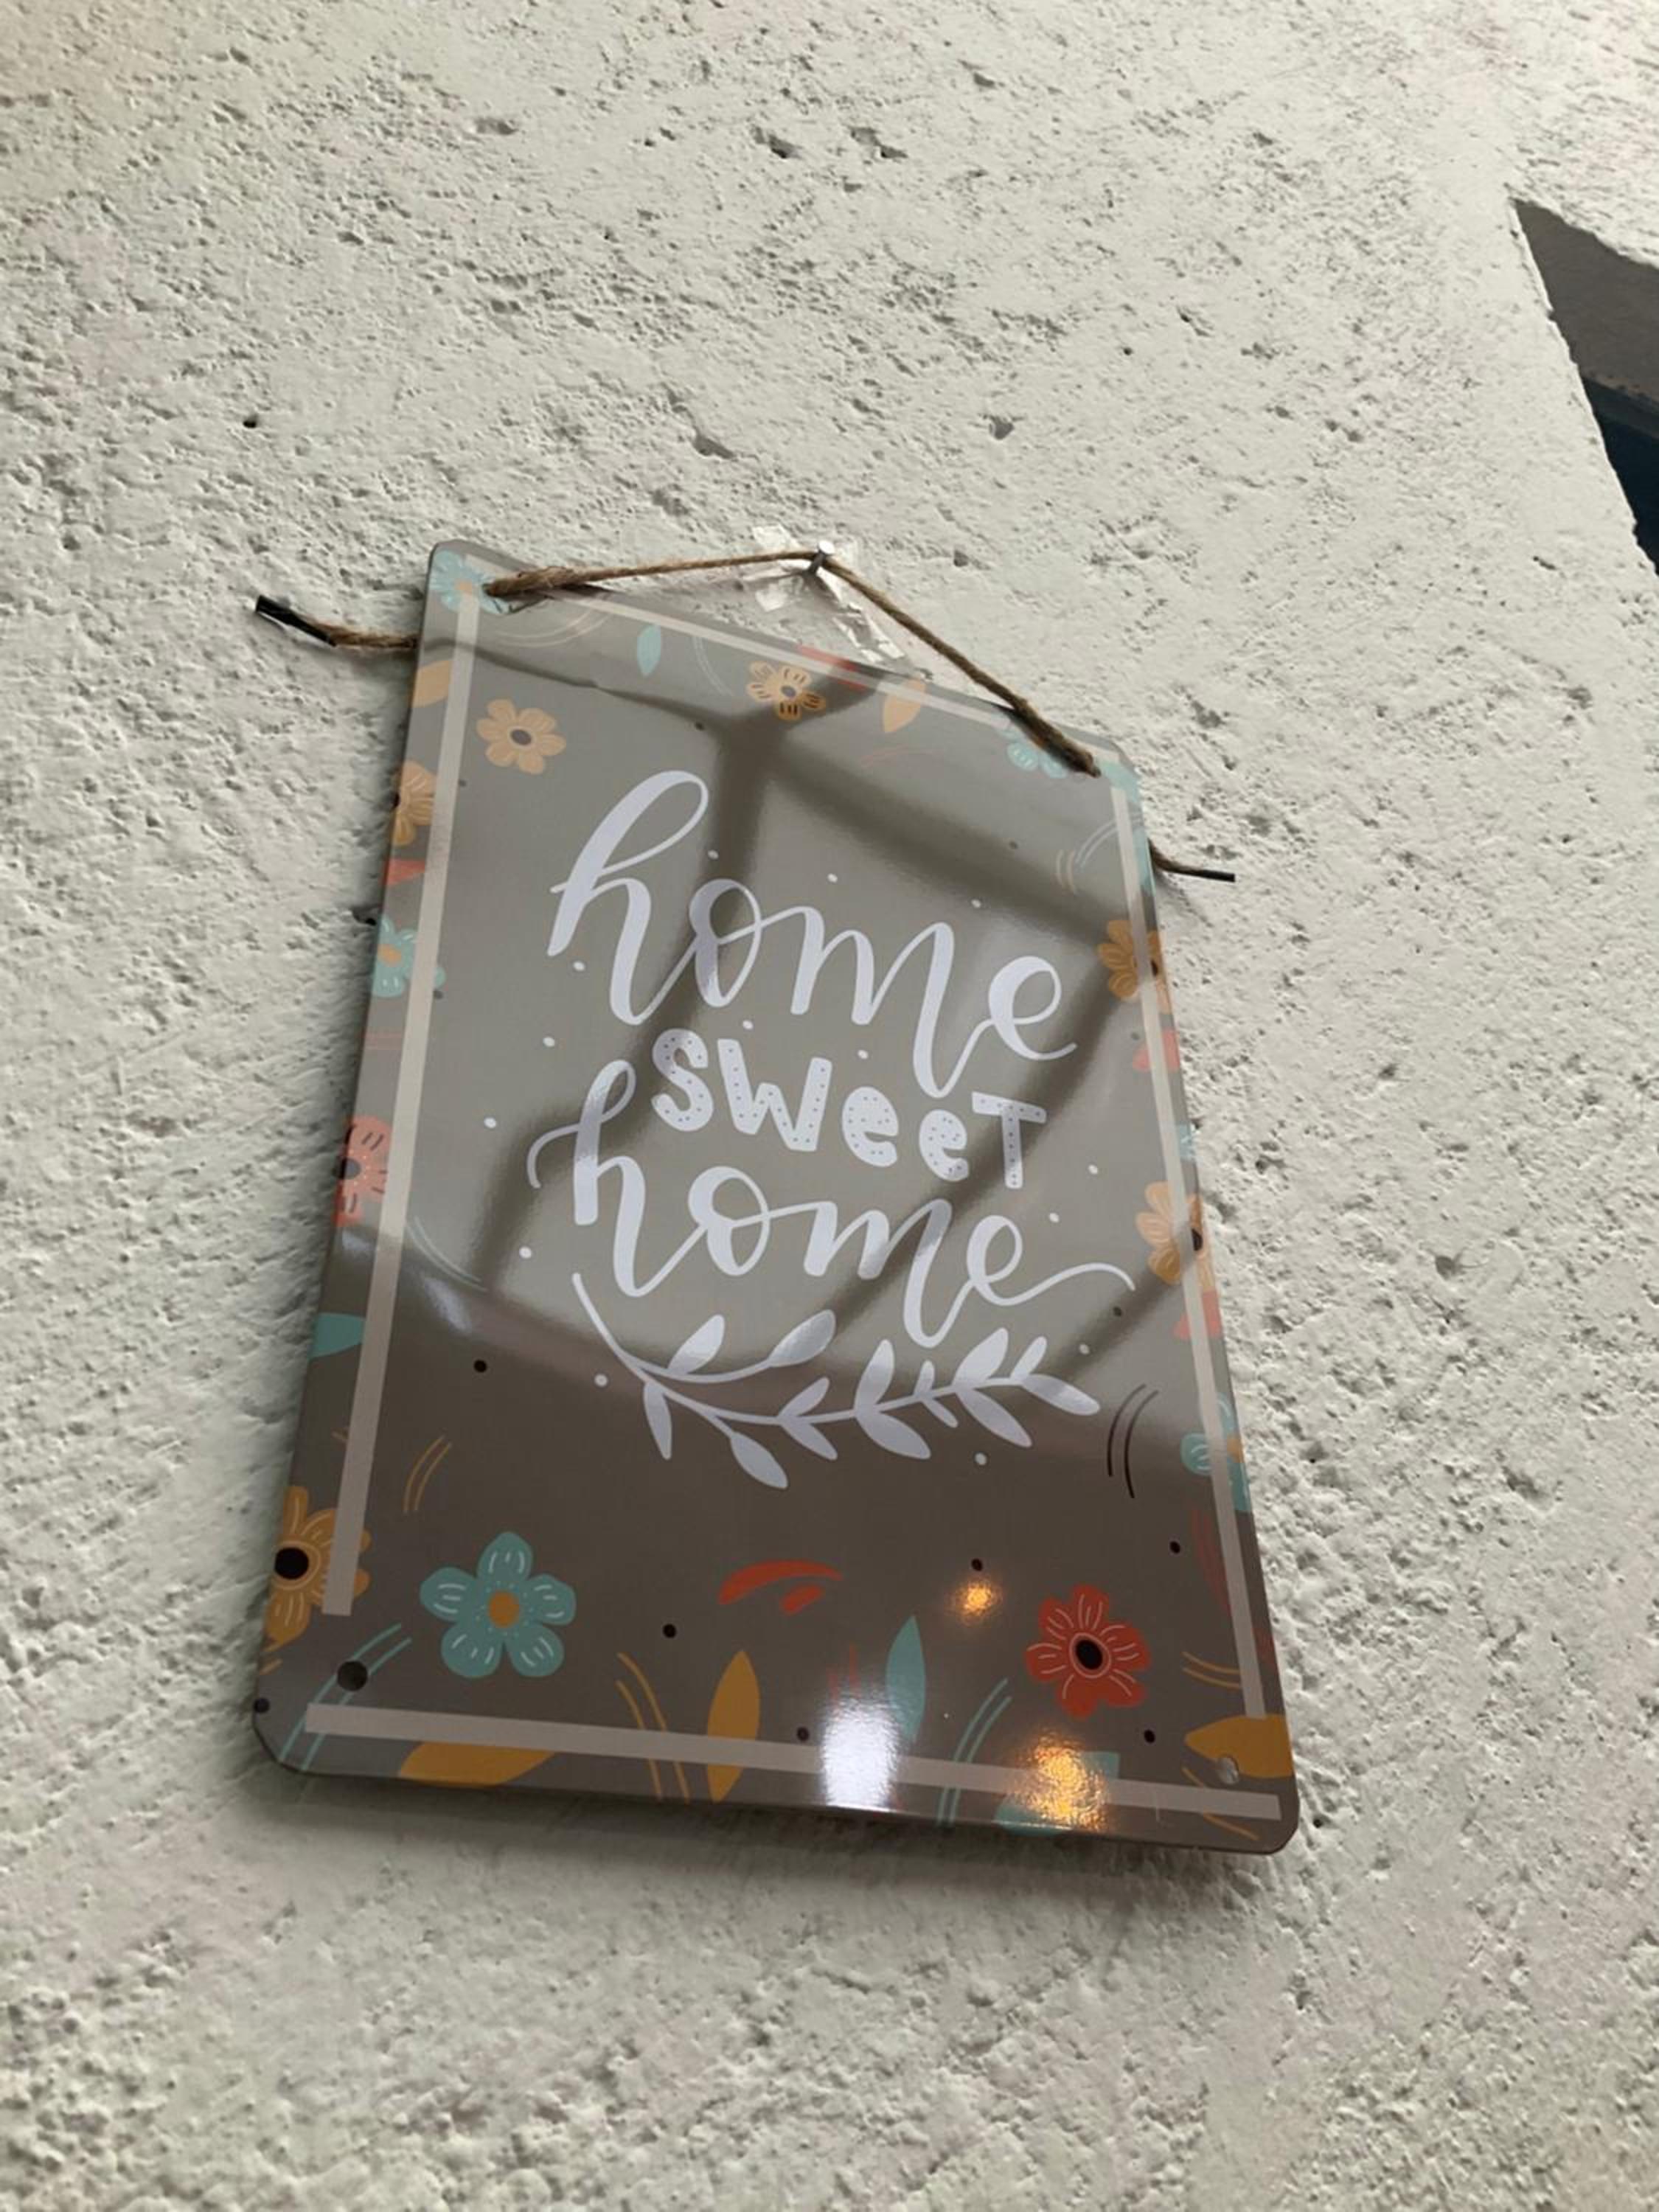 home
sweeT
home